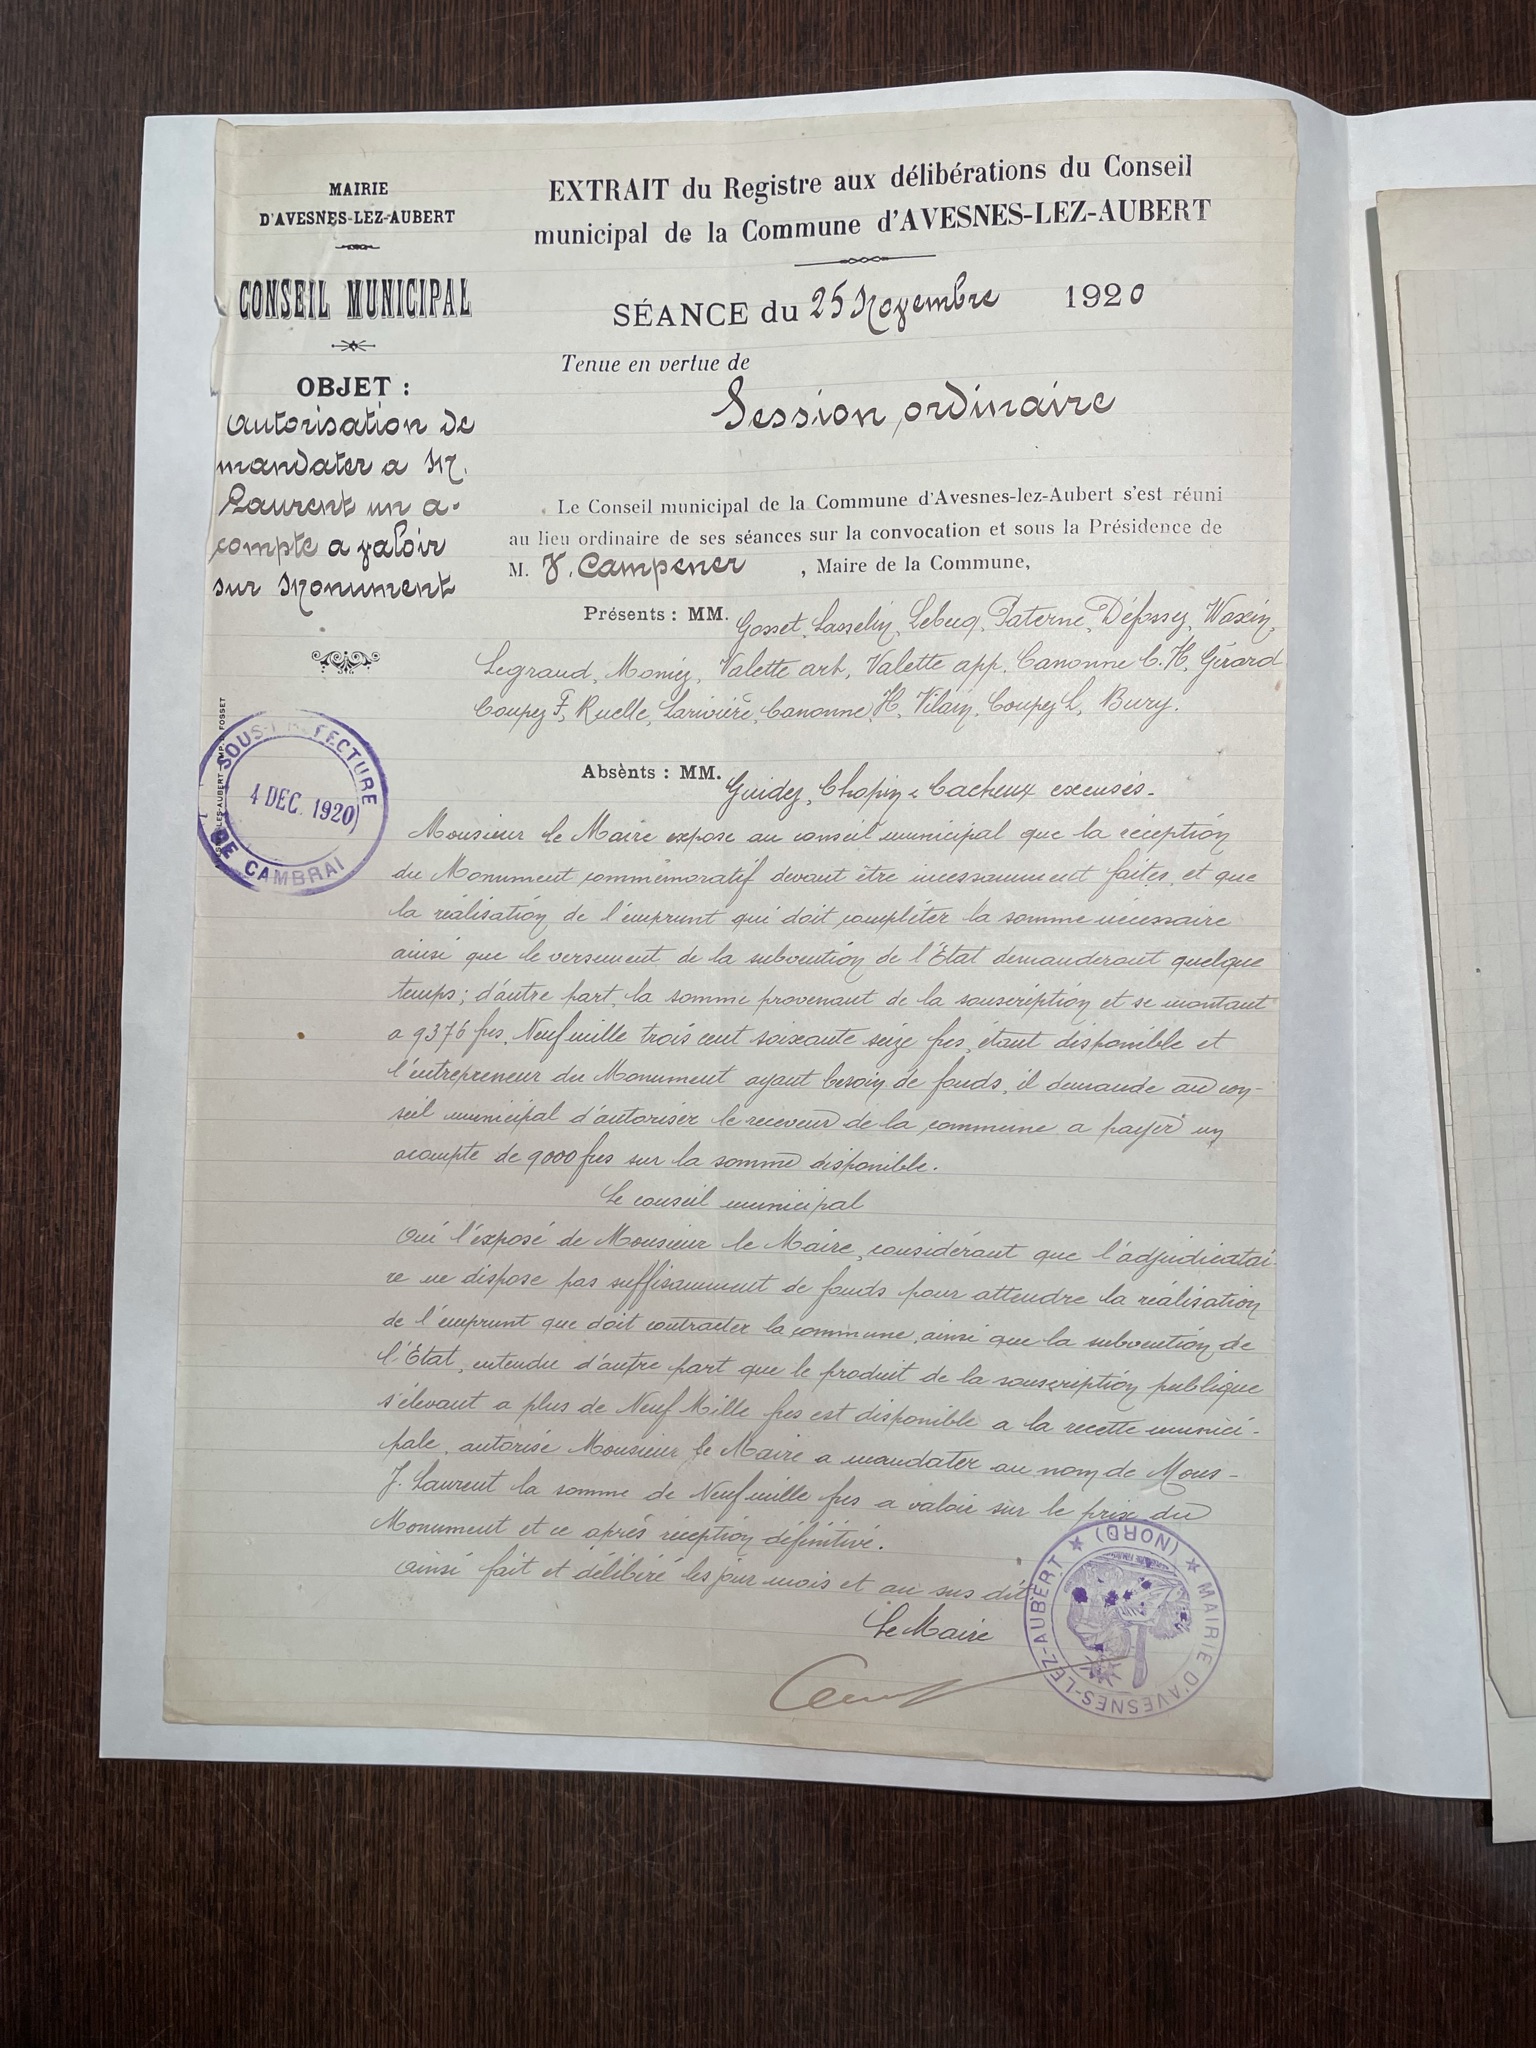 MAIRIE
D'AVESNES-LEZ-AUBERT
CONSEIL MUNICIPAL
OBJET :
autorisation de
mandater a M.
Laurent un a-
compte a valoir
sur Monument
EXTRAIT du Registre aux délibérations du Conseil
municipal de la Commune d'AVESNES-LEZ-AUBERT
SÉANCE du 25 Novembre 1920
Tenue en vertue de
Session ordinaire
Le Conseil municipal de la Commune d'Avesnes-lez-Aubert s'est réuni
au lieu ordinaire de ses séances sur la convocation et sous la Présidence de
M. Campener, Maire de la Commune,
Présents : MM. Gosset, Lasselin, Lebecq, Paterne, Défossez, Waxin,
Legrand, Moniez, Valette art, Valette app. Canonne C. H, Gérard
Coupez F, Ruelle, Larivière, Canonne H, Vilain, Coupez L, Bury.
Absènts : MM. Guidez, Chopin, Cacheux excusés.
SOUS-PRÉFECTURE
4 DEC. 1920
DE CAMBRAI
LES-AUBERT IMP. FOSSET
Monsieur le Maire expose au conseil municipal que la réception
du Monument commémoratif devant être incessamment faites, et que
la réalisation de l'emprunt qui doit compléter la somme nécessaire
ainsi que le versement de la subvention de l'État demanderont quelque
temps ; d'autre part, la somme provenant de la souscription et se montant
a 9376 frs, Neuf mille trois cent soixante seize frs, étant disponible et
l'entrepreneur du Monument ayant besoin de fonds, il demande au con-
seil municipal d'autoriser le receveur de la commune a payer un
acompte de 9000 frs sur la somme disponible.
Le conseil municipal
Oui l'exposé de Monsieur le Maire, considérant que l'adjudicatai-
re ne dispose pas suffisamment de fonds pour attendre la réalisation
de l'emprunt que doit contracter la commune, ainsi que la subvention de
l'État, entendu d'autre part que le produit de la souscription publique
s'élevant a plus de Neuf Mille frs est disponible a la recette munici-
pale, autorise Monsieur le Maire a mandater au nom de Mons-
J. Laurent la somme de Neuf mille frs a valoir sur le prix du
Monument et ce après réception définitive.
Ainsi fait et délibéré les jour mois et an sus dit
Le Maire
MAIRIE D'AVESNES-LEZ-AUBERT (NORD)